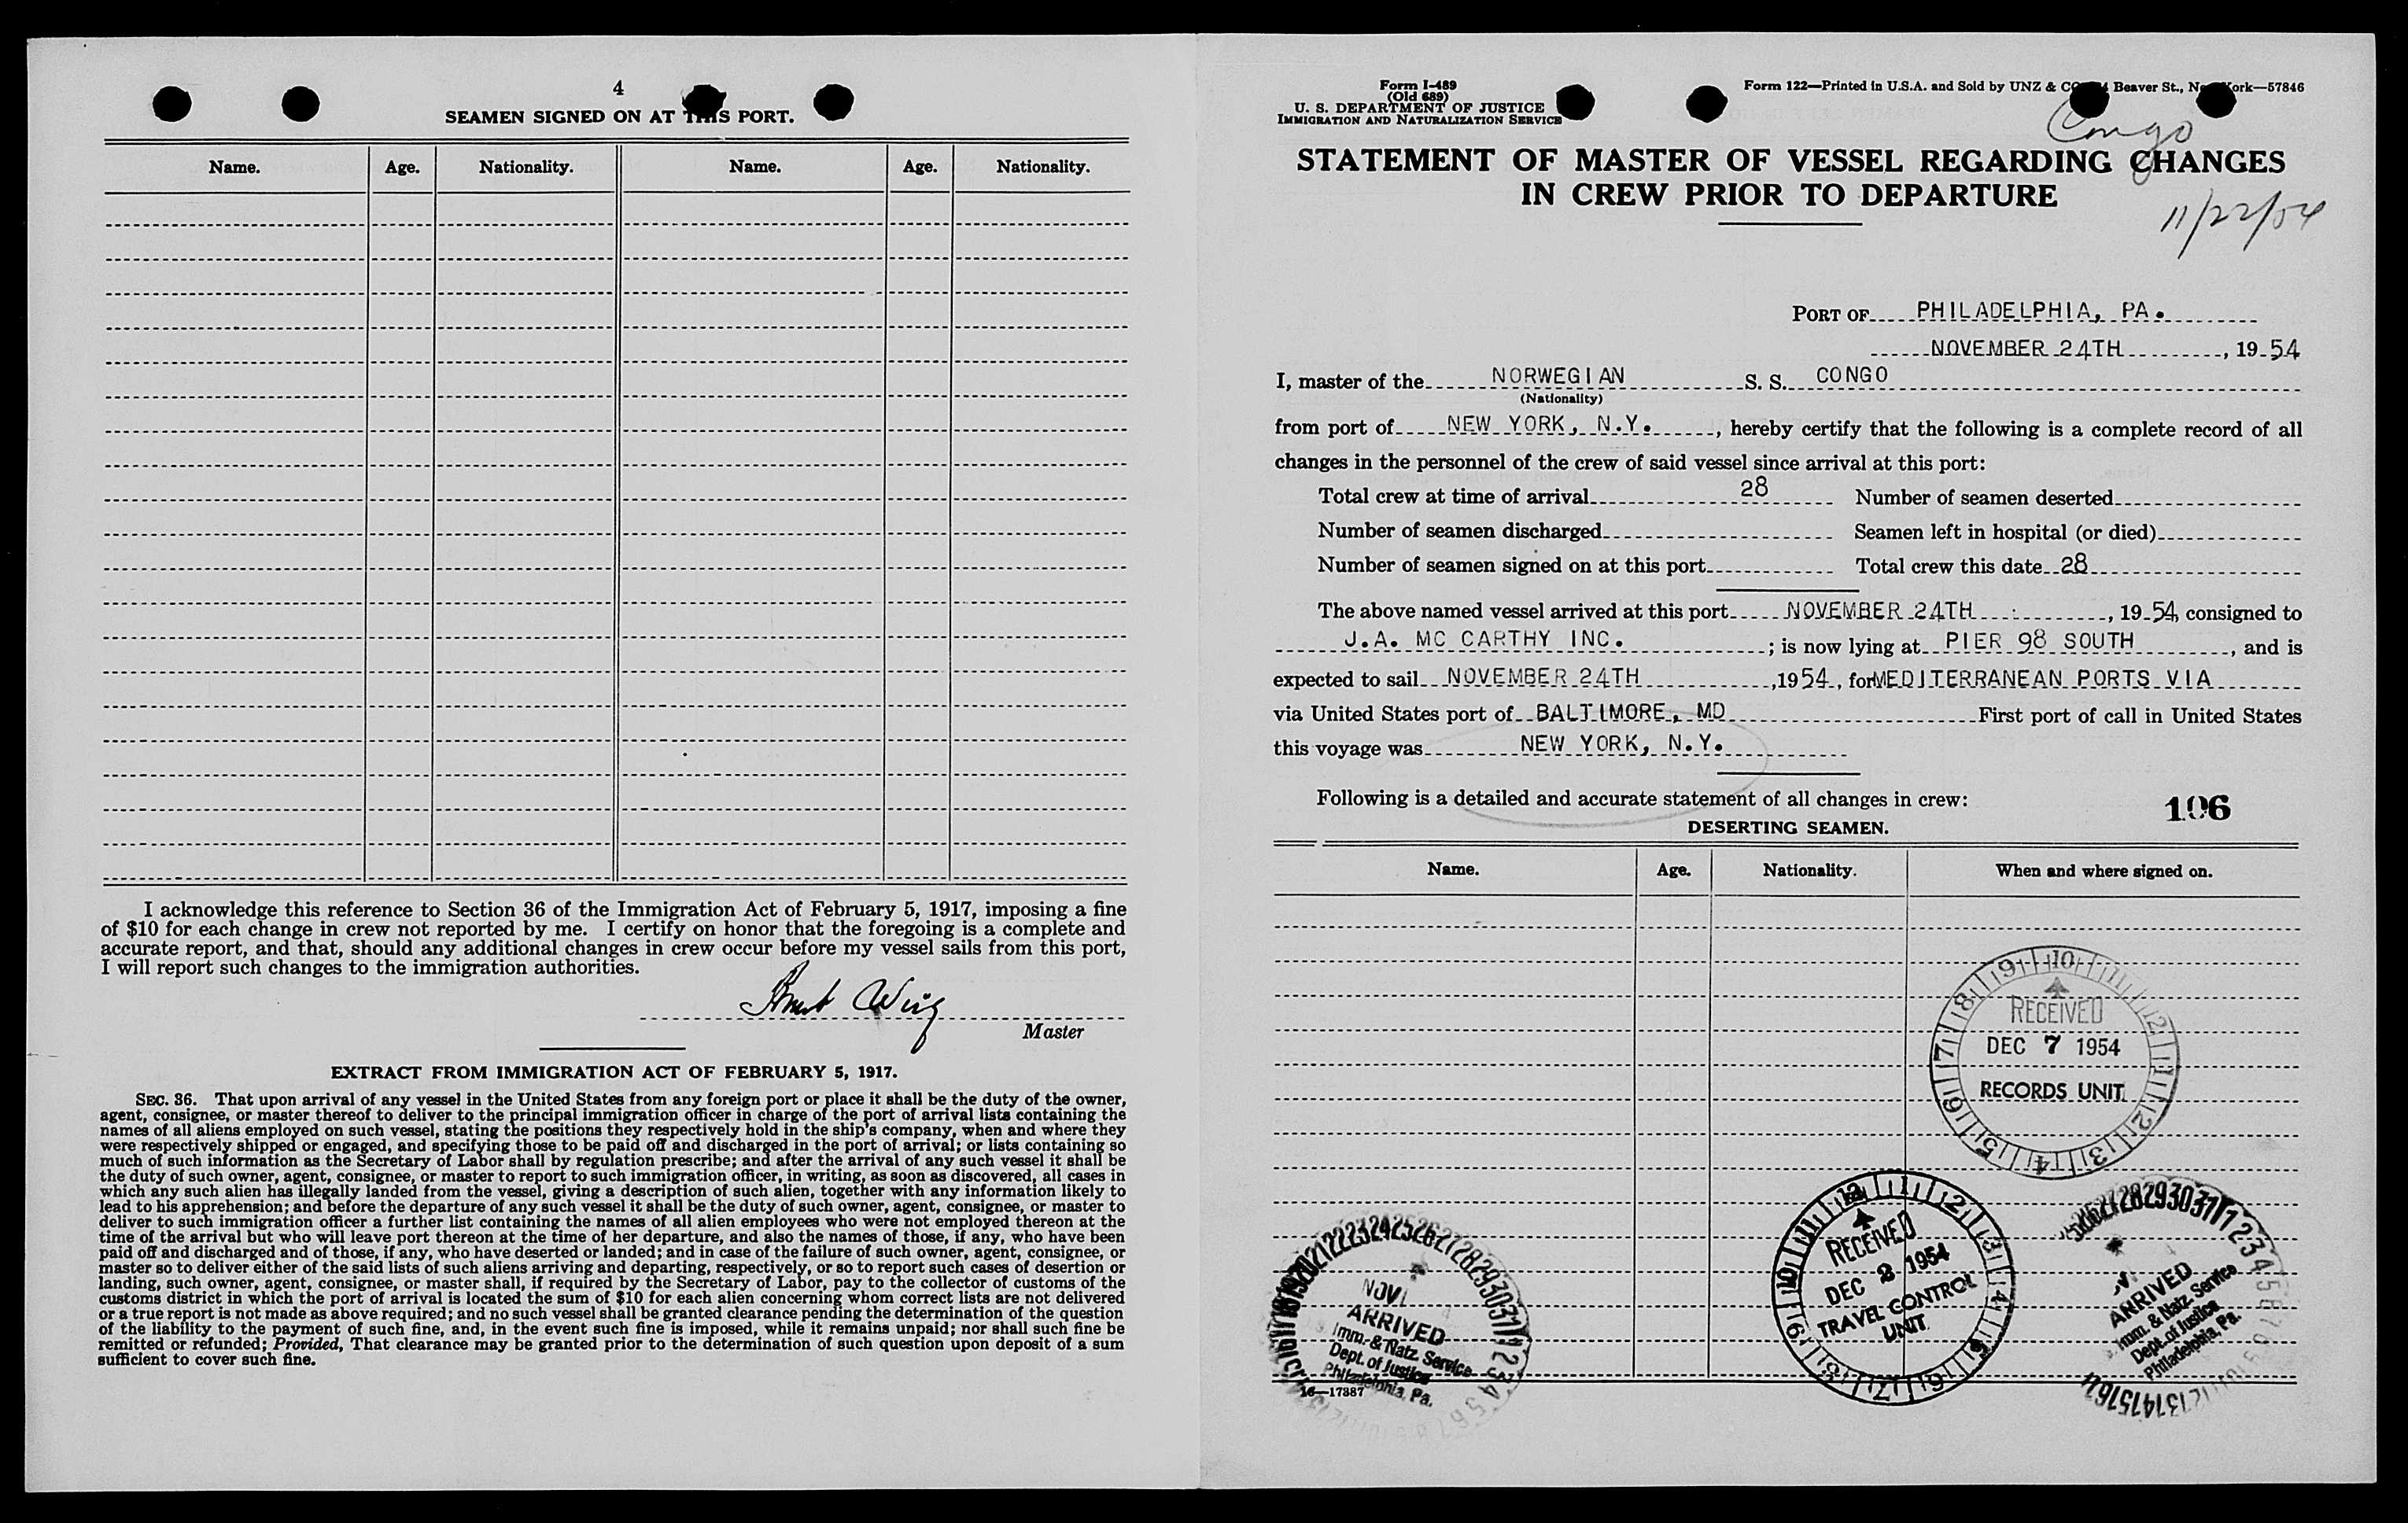 4
SEAMEN SIGNED ON AT THIS PORT.
Name. Age. Nationality. Name. Age. Nationality.
I acknowledge this reference to Section 36 of the Immigration Act of February 5, 1917, imposing a fine
of $10 for each change in crew not reported by me. I certify on honor that the foregoing is a complete and
accurate report, and that, should any additional changes in crew occur before my vessel sails from this port,
I will report such changes to the immigration authorities.
Master
EXTRACT FROM IMMIGRATION ACT OF FEBRUARY 5, 1917.
SEC. 36. That upon arrival of any vessel in the United States from any foreign port or place it shall be the duty of the owner,
agent, consignee, or master thereof to deliver to the principal immigration officer in charge of the port of arrival lists containing the
names of all aliens employed on such vessel, stating the positions they respectively hold in the ship's company, when and where they
were respectively shipped or engaged, and specifying those to be paid off and discharged in the port of arrival; or lists containing so
much of such information as the Secretary of Labor shall by regulation prescribe; and after the arrival of any such vessel it shall be
the duty of such owner, agent, consignee, or master to report to such immigration officer, in writing, as soon as discovered, all cases in
which any such alien has illegally landed from the vessel, giving a description of such alien, together with any information likely to
lead to his apprehension; and before the departure of any such vessel it shall be the duty of such owner, agent, consignee, or master to
deliver to such immigration officer a further list containing the names of all alien employees who were not employed thereon at the
time of the arrival but who will leave port thereon at the time of her departure, and also the names of those, if any, who have been
paid off and discharged and of those, if any, who have deserted or landed; and in case of the failure of such owner, agent, consignee, or
master so to deliver either of the said lists of such aliens arriving and departing, respectively, or so to report such cases of desertion or
landing, such owner, agent, consignee, or master shall, if required by the Secretary of Labor, pay to the collector of customs of the
customs district in which the port of arrival is located the sum of $10 for each alien concerning whom correct lists are not delivered
or a true report is not made as above required; and no such vessel shall be granted clearance pending the determination of the question
of the liability to the payment of such fine, and, in the event such fine is imposed, while it remains unpaid; nor shall such fine be
remitted or refunded; Provided, That clearance may be granted prior to the determination of such question upon deposit of a sum
sufficient to cover such fine.
Form I-489
(Old 689)
U. S. DEPARTMENT OF JUSTICE
IMMIGRATION AND NATURALIZATION SERVICE
Form 122—Printed in U.S.A. and Sold by UNZ & CO Beaver St., New York—57846
Congo
STATEMENT OF MASTER OF VESSEL REGARDING CHANGES
IN CREW PRIOR TO DEPARTURE
11/22/54
PORT OF PHILADELPHIA, PA.
NOVEMBER 24TH, 1954
I, master of the NORWEGIAN S. S. CONGO
(Nationality)
from port of NEW YORK, N.Y., hereby certify that the following is a complete record of all
changes in the personnel of the crew of said vessel since arrival at this port:
Total crew at time of arrival 28 Number of seamen deserted
Number of seamen discharged Seamen left in hospital (or died)
Number of seamen signed on at this port Total crew this date 28
The above named vessel arrived at this port NOVEMBER 24TH, 1954, consigned to
J.A. MC CARTHY INC.; is now lying at PIER 98 SOUTH, and is
expected to sail NOVEMBER 24TH, 1954, for MEDITERRANEAN PORTS VIA
via United States port of BALTIMORE, MD First port of call in United States
this voyage was NEW YORK, N.Y.
Following is a detailed and accurate statement of all changes in crew:
106
DESERTING SEAMEN.
Name. Age. Nationality. When and where signed on.
RECEIVED
DEC 7 1954
RECORDS UNIT
RECEIVED
DEC 2 1954
TRAVEL CONTROL
UNIT
NOV
ARRIVED
Imm. & Natz. Service
Dept. of Justice
Philadelphia, Pa.
ARRIVED
Imm. & Natz. Service
Dept. of Justice
Philadelphia, Pa.
16—17387